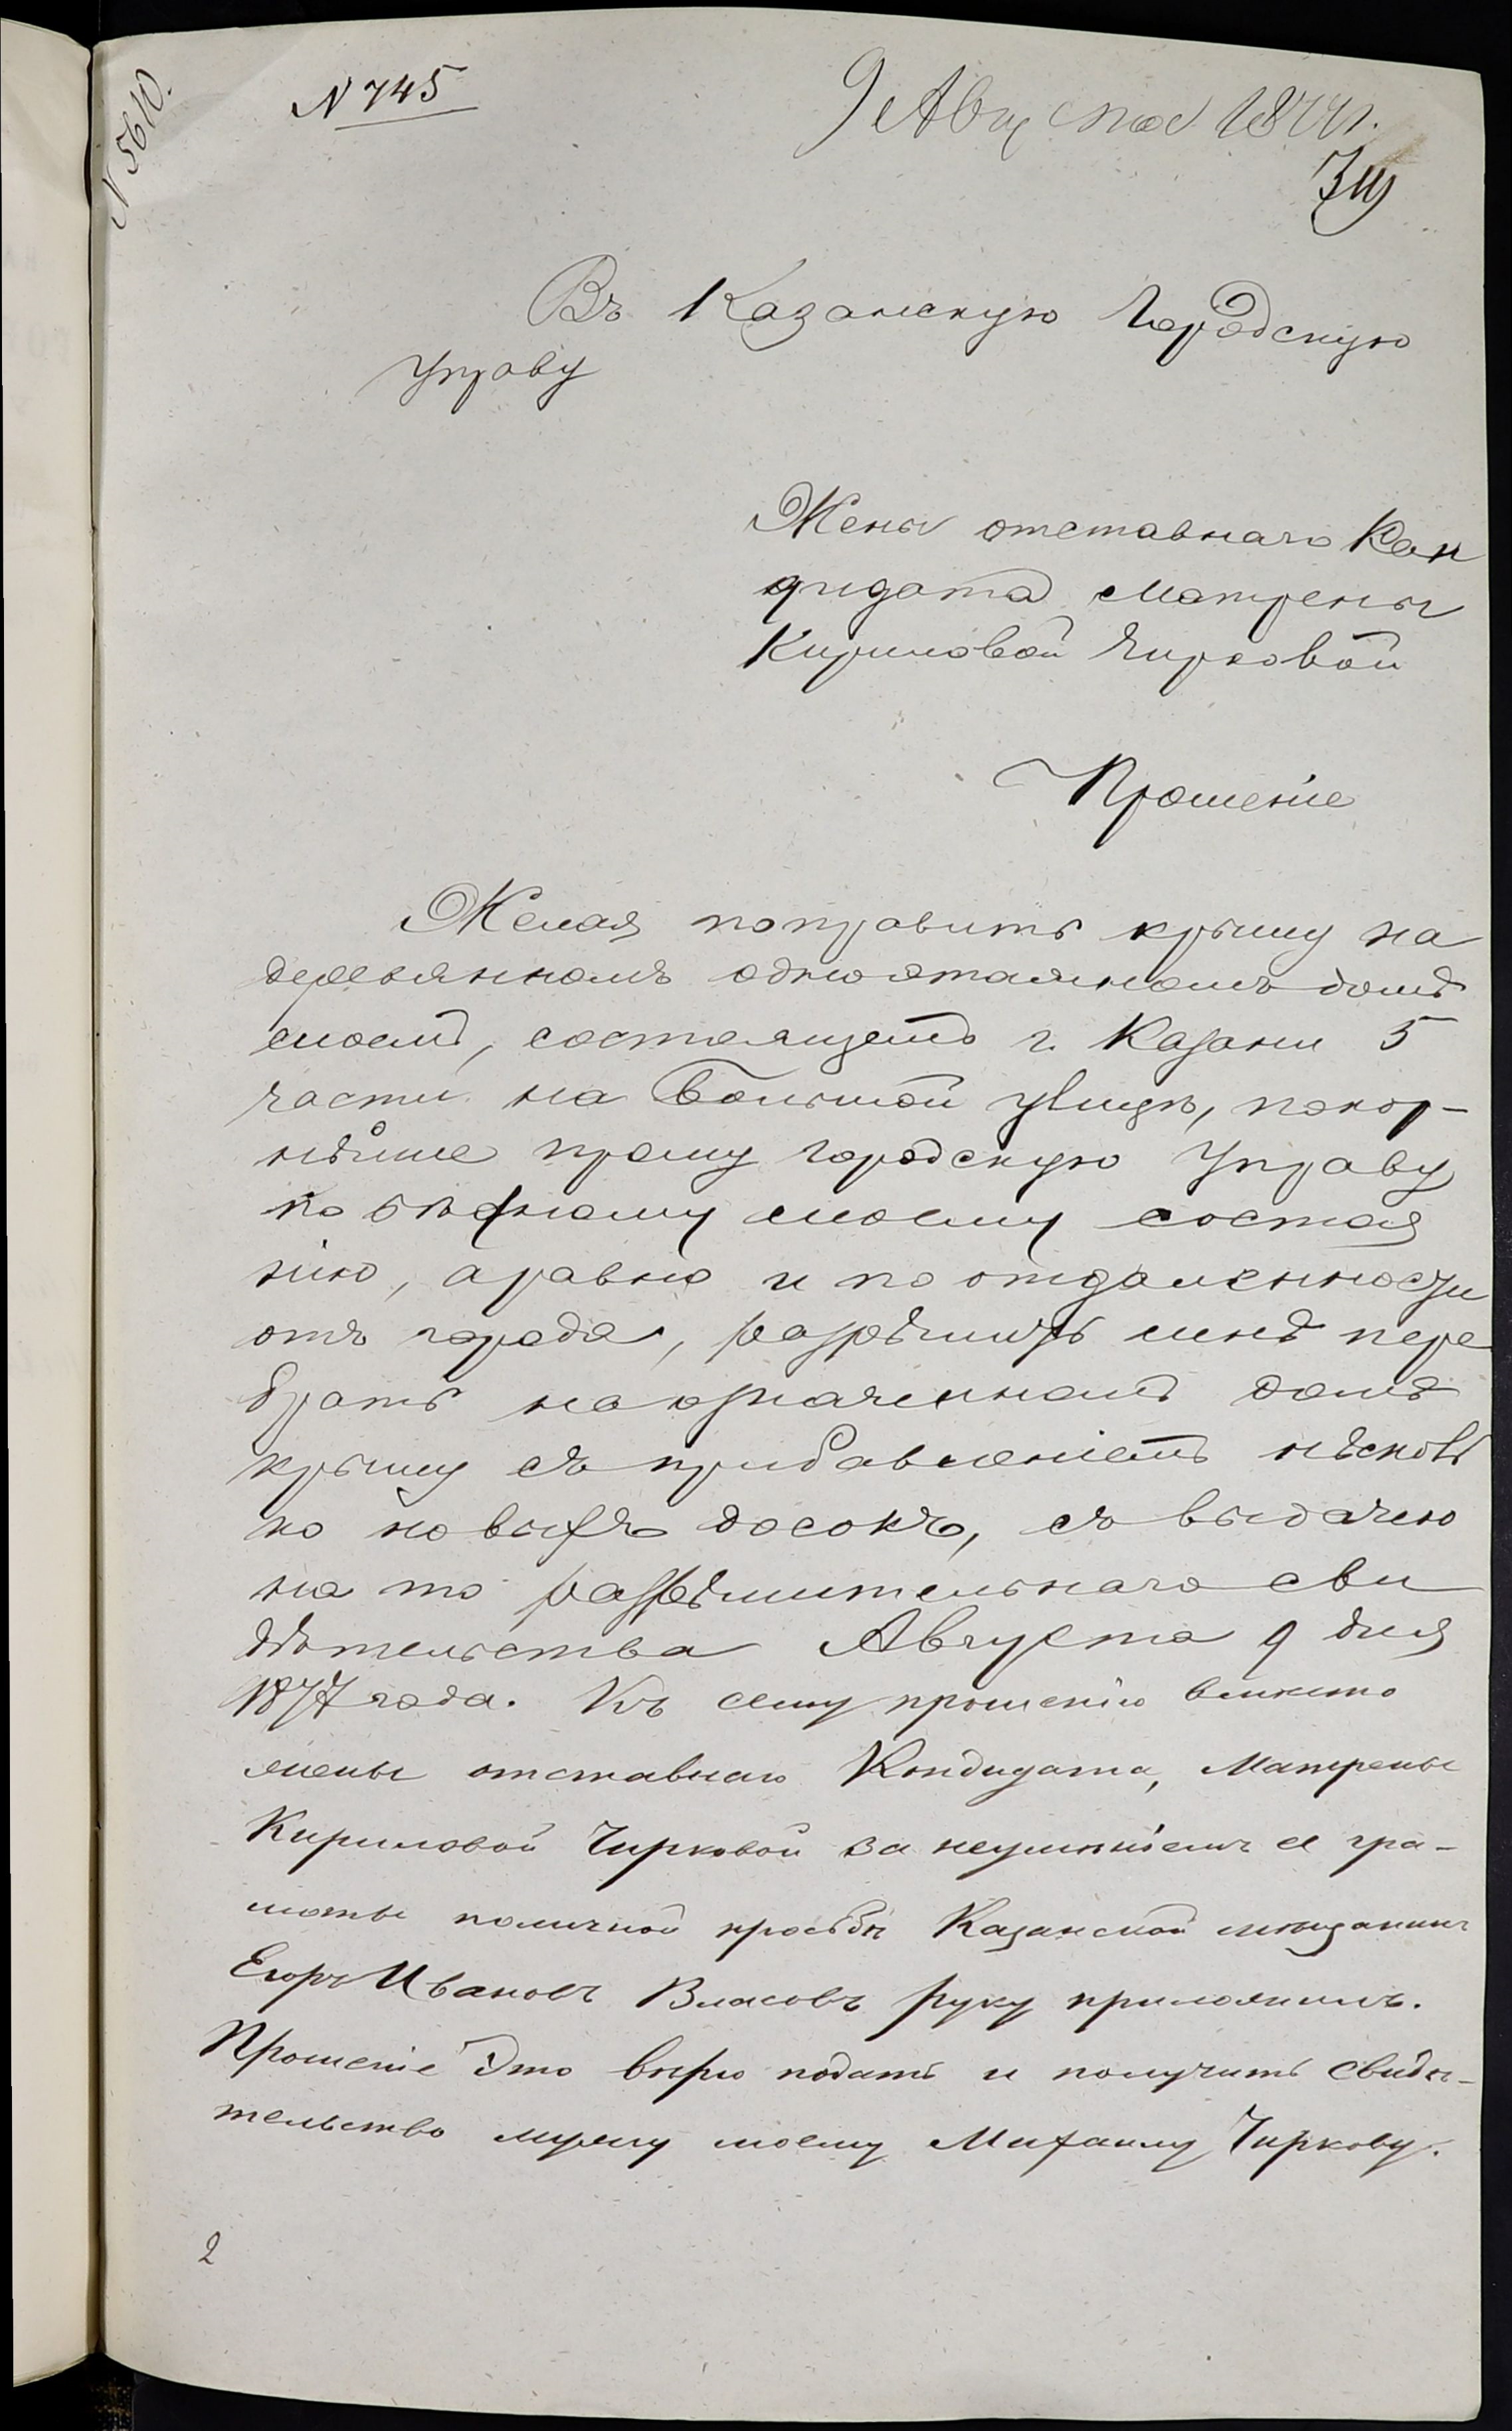 N 5610.
N 745
9 Августа 1877г.
Въ Казанскую Городскую
Управу
Жены отставнаго Кан
дидата Матрены
Кириловой Чирковой
Прошеніе
Желая поправить крышу на
деревянномъ одноэтажномъ домѣ
моемъ, состоящемъ г. Казани 5
части на Большой улицѣ, покор-
нѣйше прошу Городскую Управу
по бѣдному моему состоя
нію, а равно и по отдаленности
отъ города, разрѣшить мнѣ пере
брать на означенномъ домѣ
крышу съ прибавленіемъ нѣсколь
ко новыхъ досокъ, съ выдачею
на то разрѣшительнаго сви
дѣтельства Августа 9 дня
1877 года. Къ сему прошенію вмѣсто
жены отставнаго Кондидата, Матрены
Кириловой Чирковой за неумѣніемъ ея гра-
моты поличной прозьбѣ Казанской мѣщанинъ
Егоръ Ивановъ Власовъ руку приложилъ.
Прошеніе Это вѣрю подать и получить свидѣ-
тельство мужу моему Михаилу Чиркову.
2